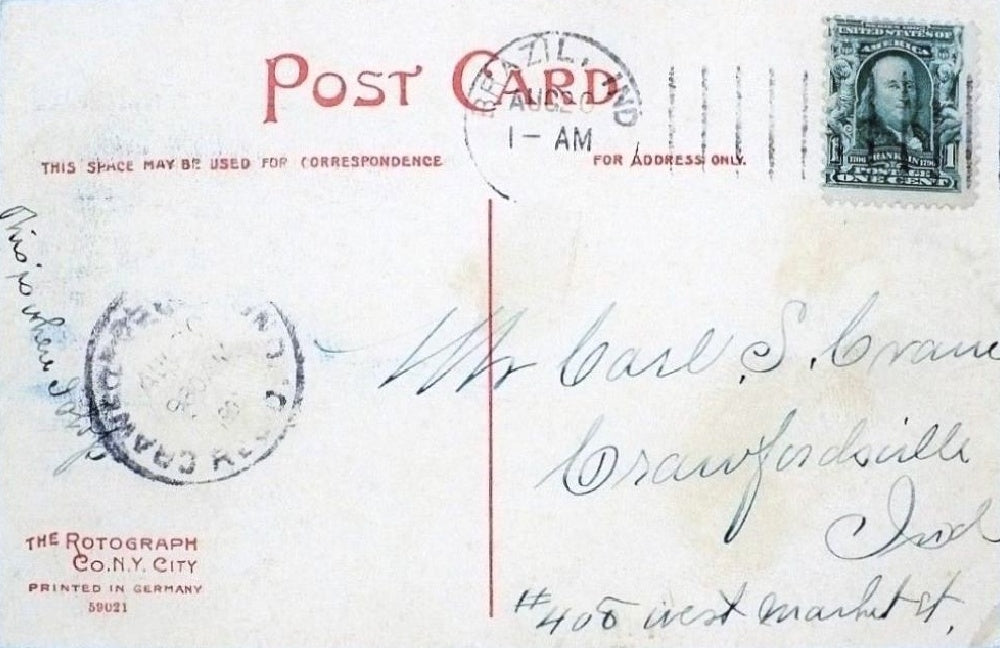 POST CARD
BRAZIL, IND
AUG 20
1 - AM
UNITED STATES OF
AMERICA
FRANKLIN
POSTAGE
1 1
ONE CENT
THIS SPACE MAY BE USED FOR CORRESPONDENCE
FOR ADDRESS ONLY.
This is where I
Mr Carl S. Crane
Crawfordsville
Ind
#408 west market st.
THE ROTOGRAPH
CO. N.Y. CITY
PRINTED IN GERMANY
59021